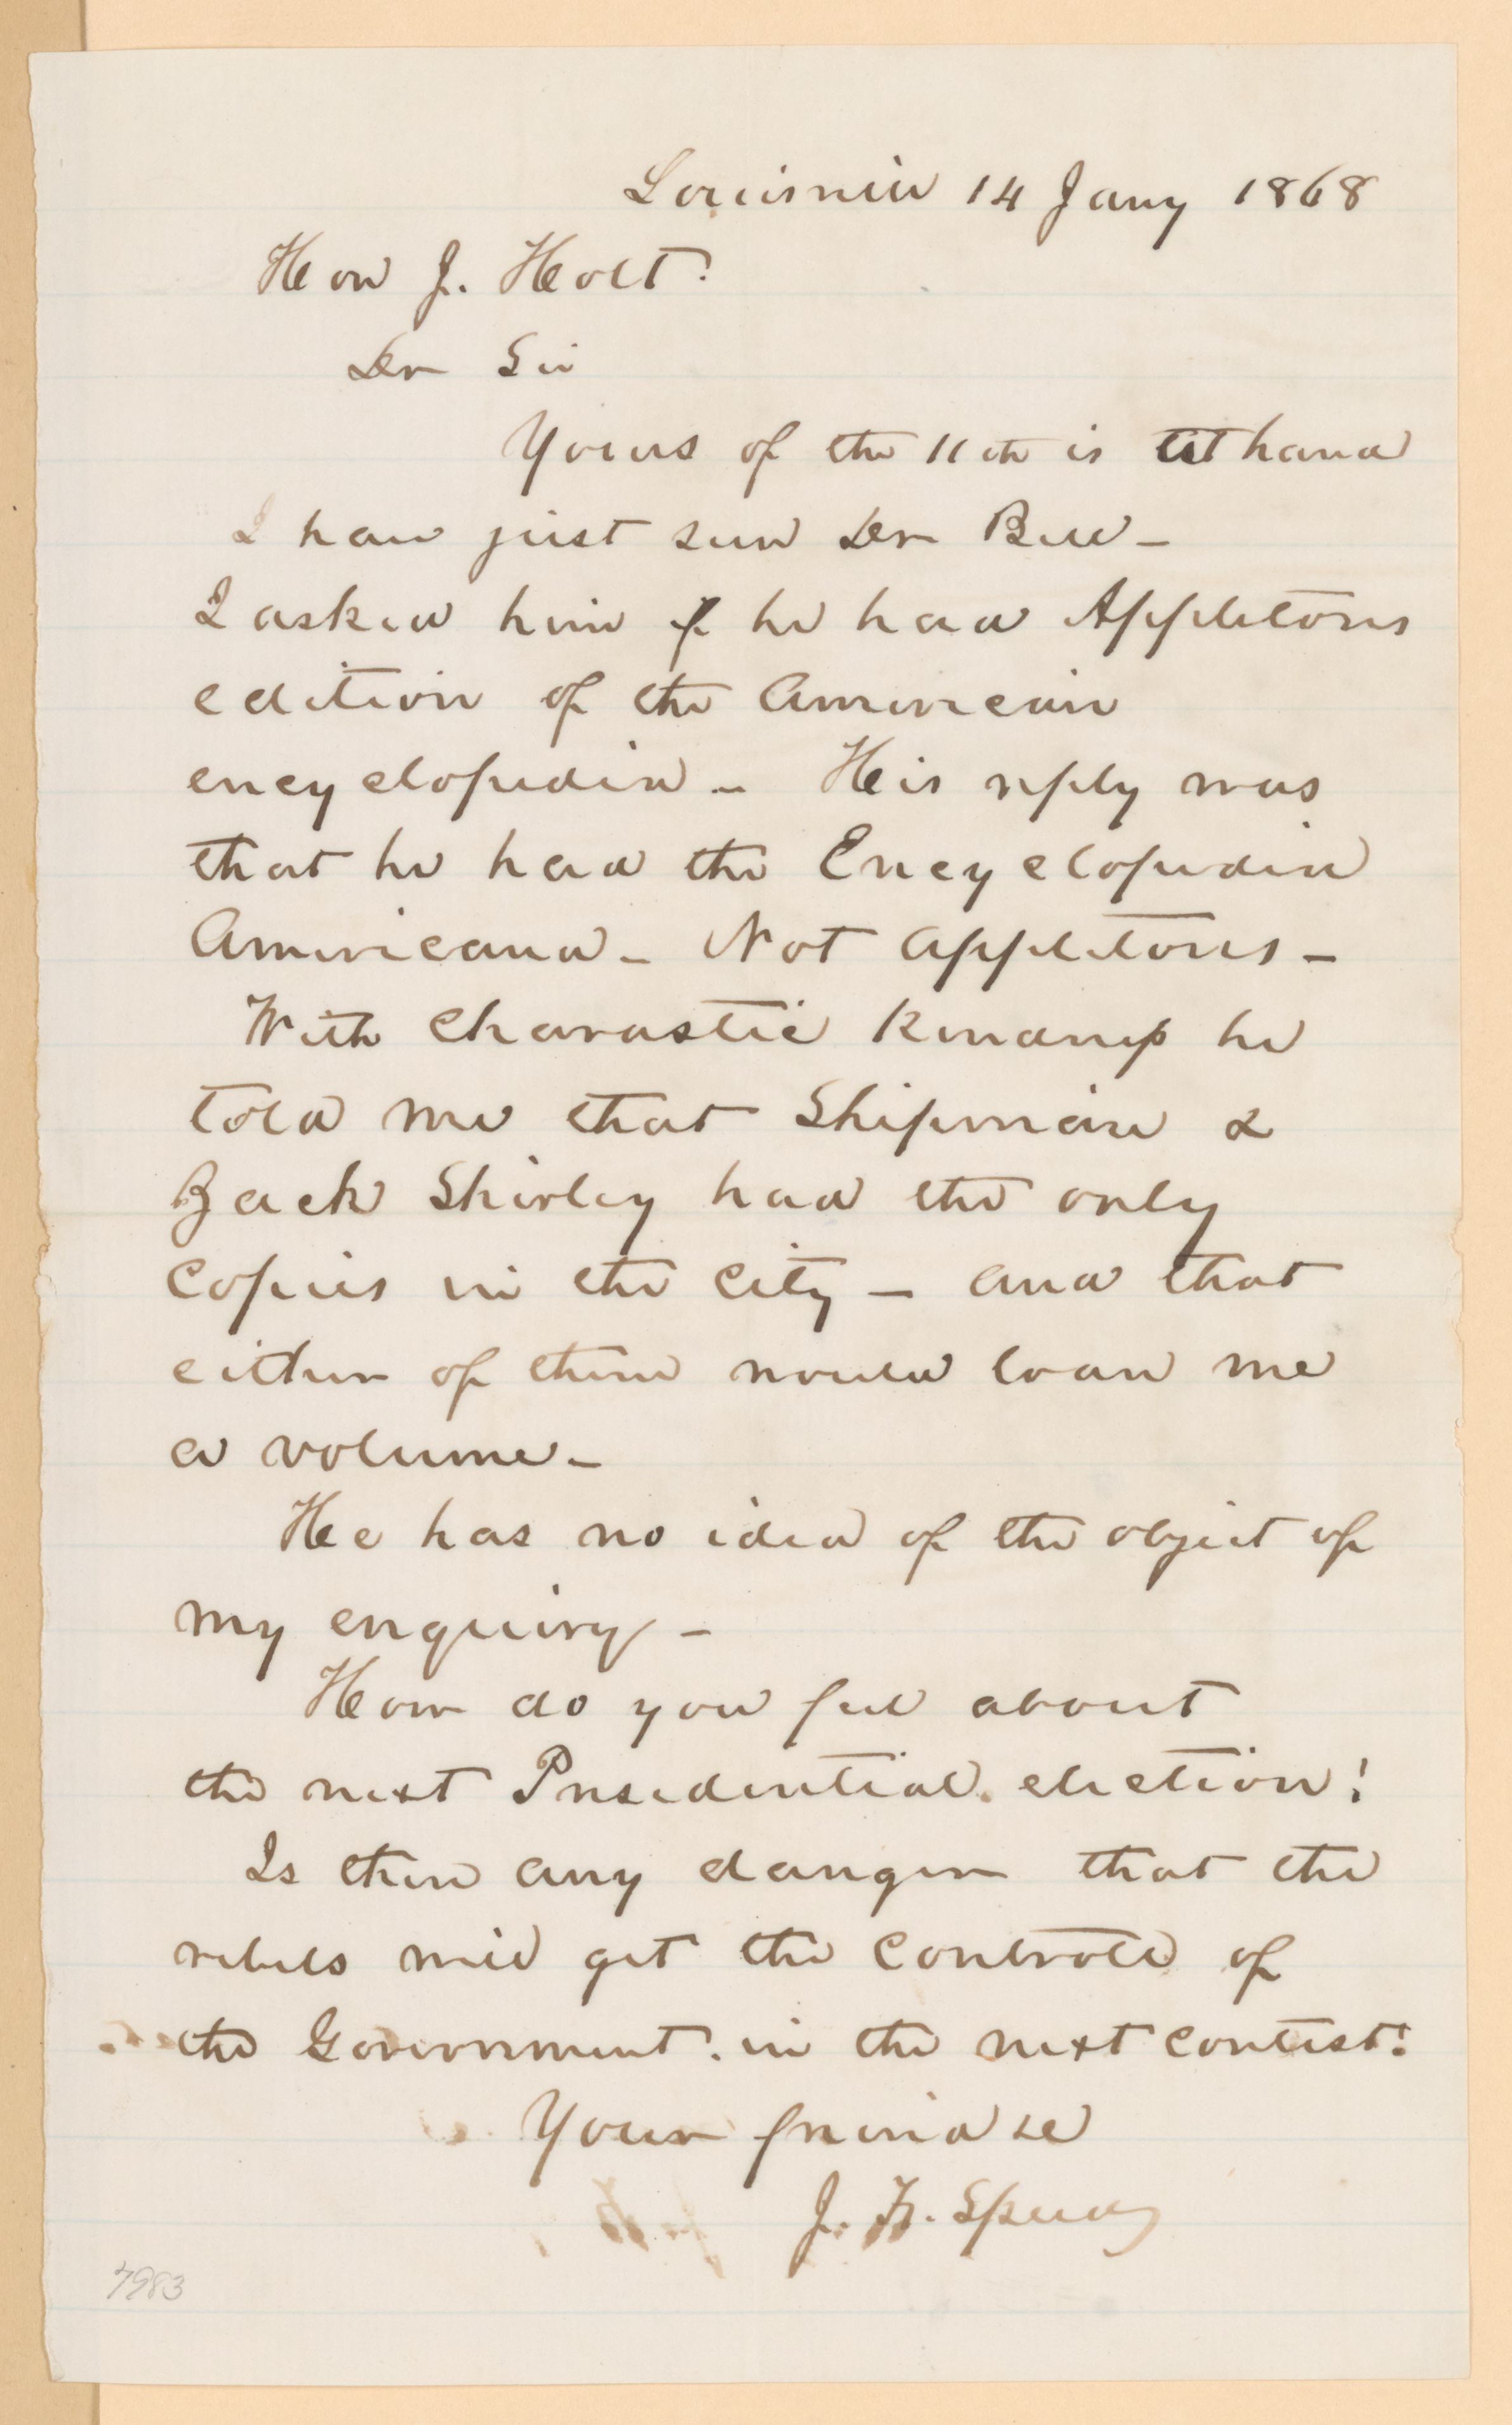 Louisville 14 Jany 1868
Hon J. Holt.
Dr Sir
Yours of the 11th is at hand
I have just seen Dr Bell -
I asked him if he had Appletons
edition of the American
encyclopedia - His reply was
that he had the Encyclopedia
Americana - Not Appletons -
With Charastic kindness he
told me that Shipman &
Zack Shirley had the only
Copies in the City - and that
either of them would loan me
a volume -
He has no idea of the object of
my enquiry -
How do you feel about
the next Presidential election?
Is there any danger that the
rebels will get the Controll of
the Government in the next Contest?
Your friend &c
J. F. Speed
7983